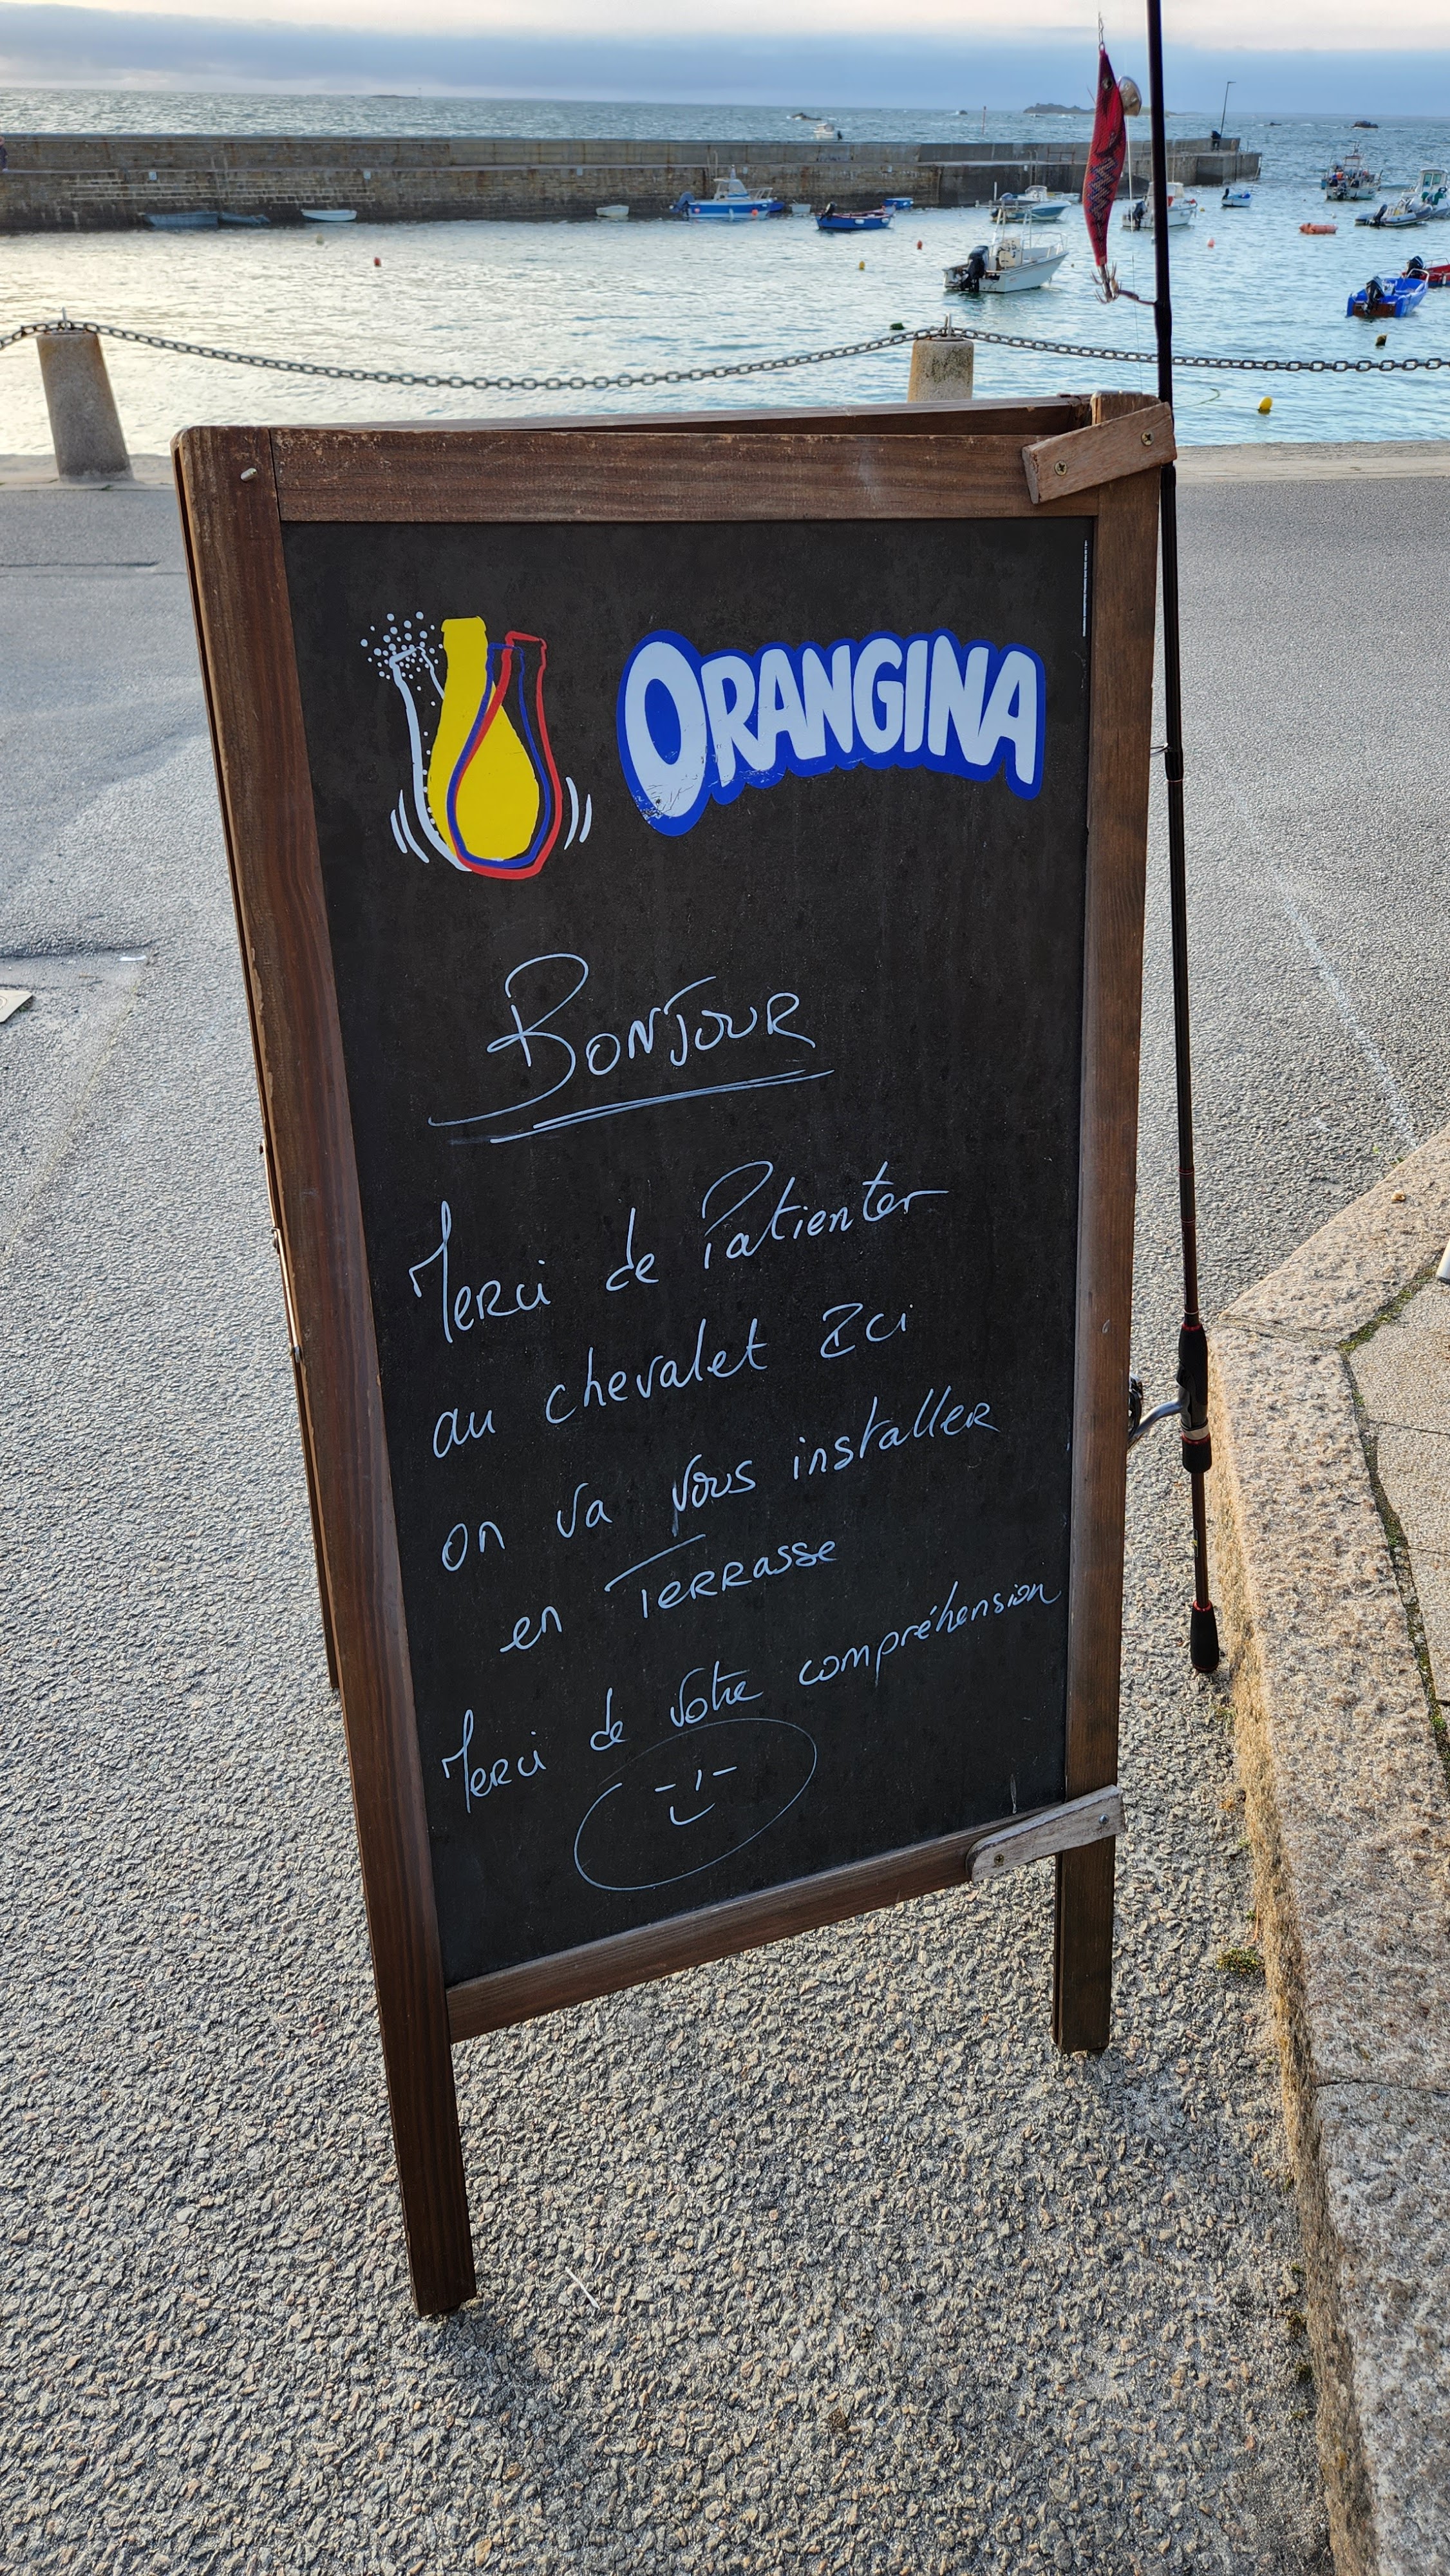 ORANGINA
BONJOUR
Merci de Patienter
au chevalet Ici
on va vous installer
en Terrasse
Merci de votre compréhension